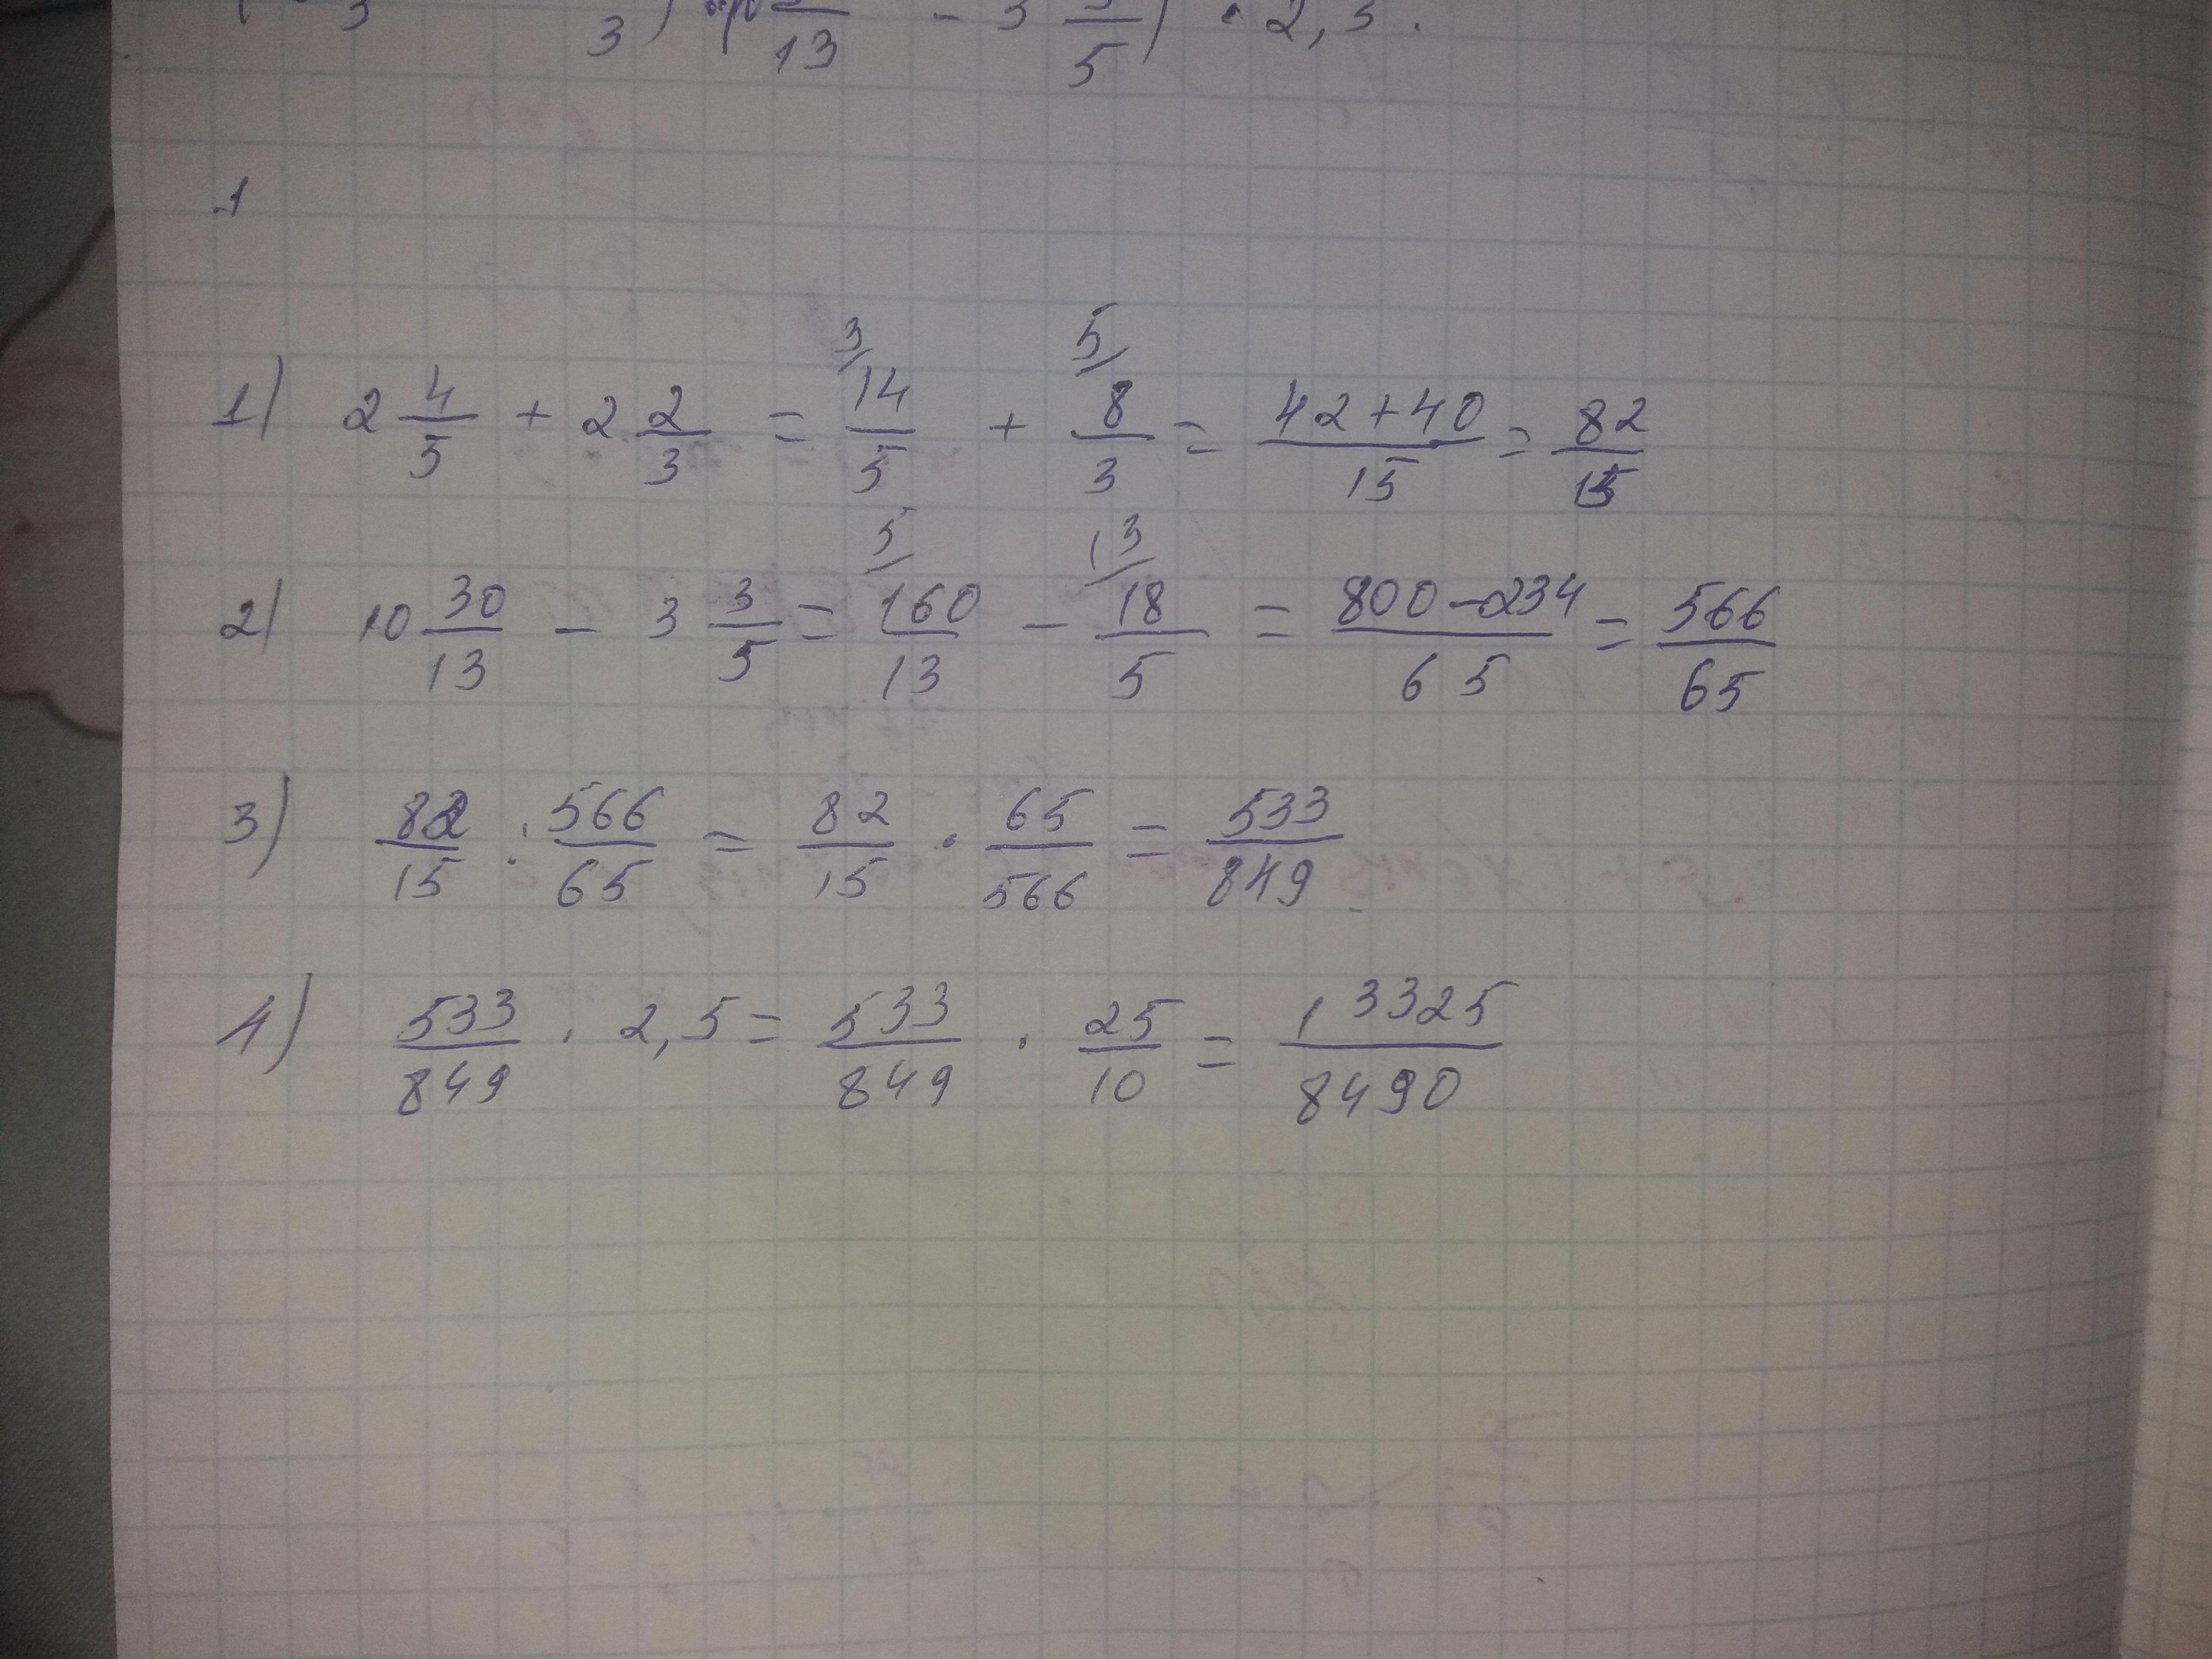 3 3) 13 - 3 5) · 2,5.
1
1) 2 4/5 + 2 2/3 = 3/ 14/5 + 5/ 8/3 = 42+40/15 = 82/15
2) 10 30/13 - 3 3/5 = 5/ 160/13 - 13/ 18/5 = 800-234/65 = 566/65
3) 82/15 : 566/65 = 82/15 · 65/566 = 533/849
4) 533/849 · 2,5 = 533/849 · 25/10 = 13325/8490